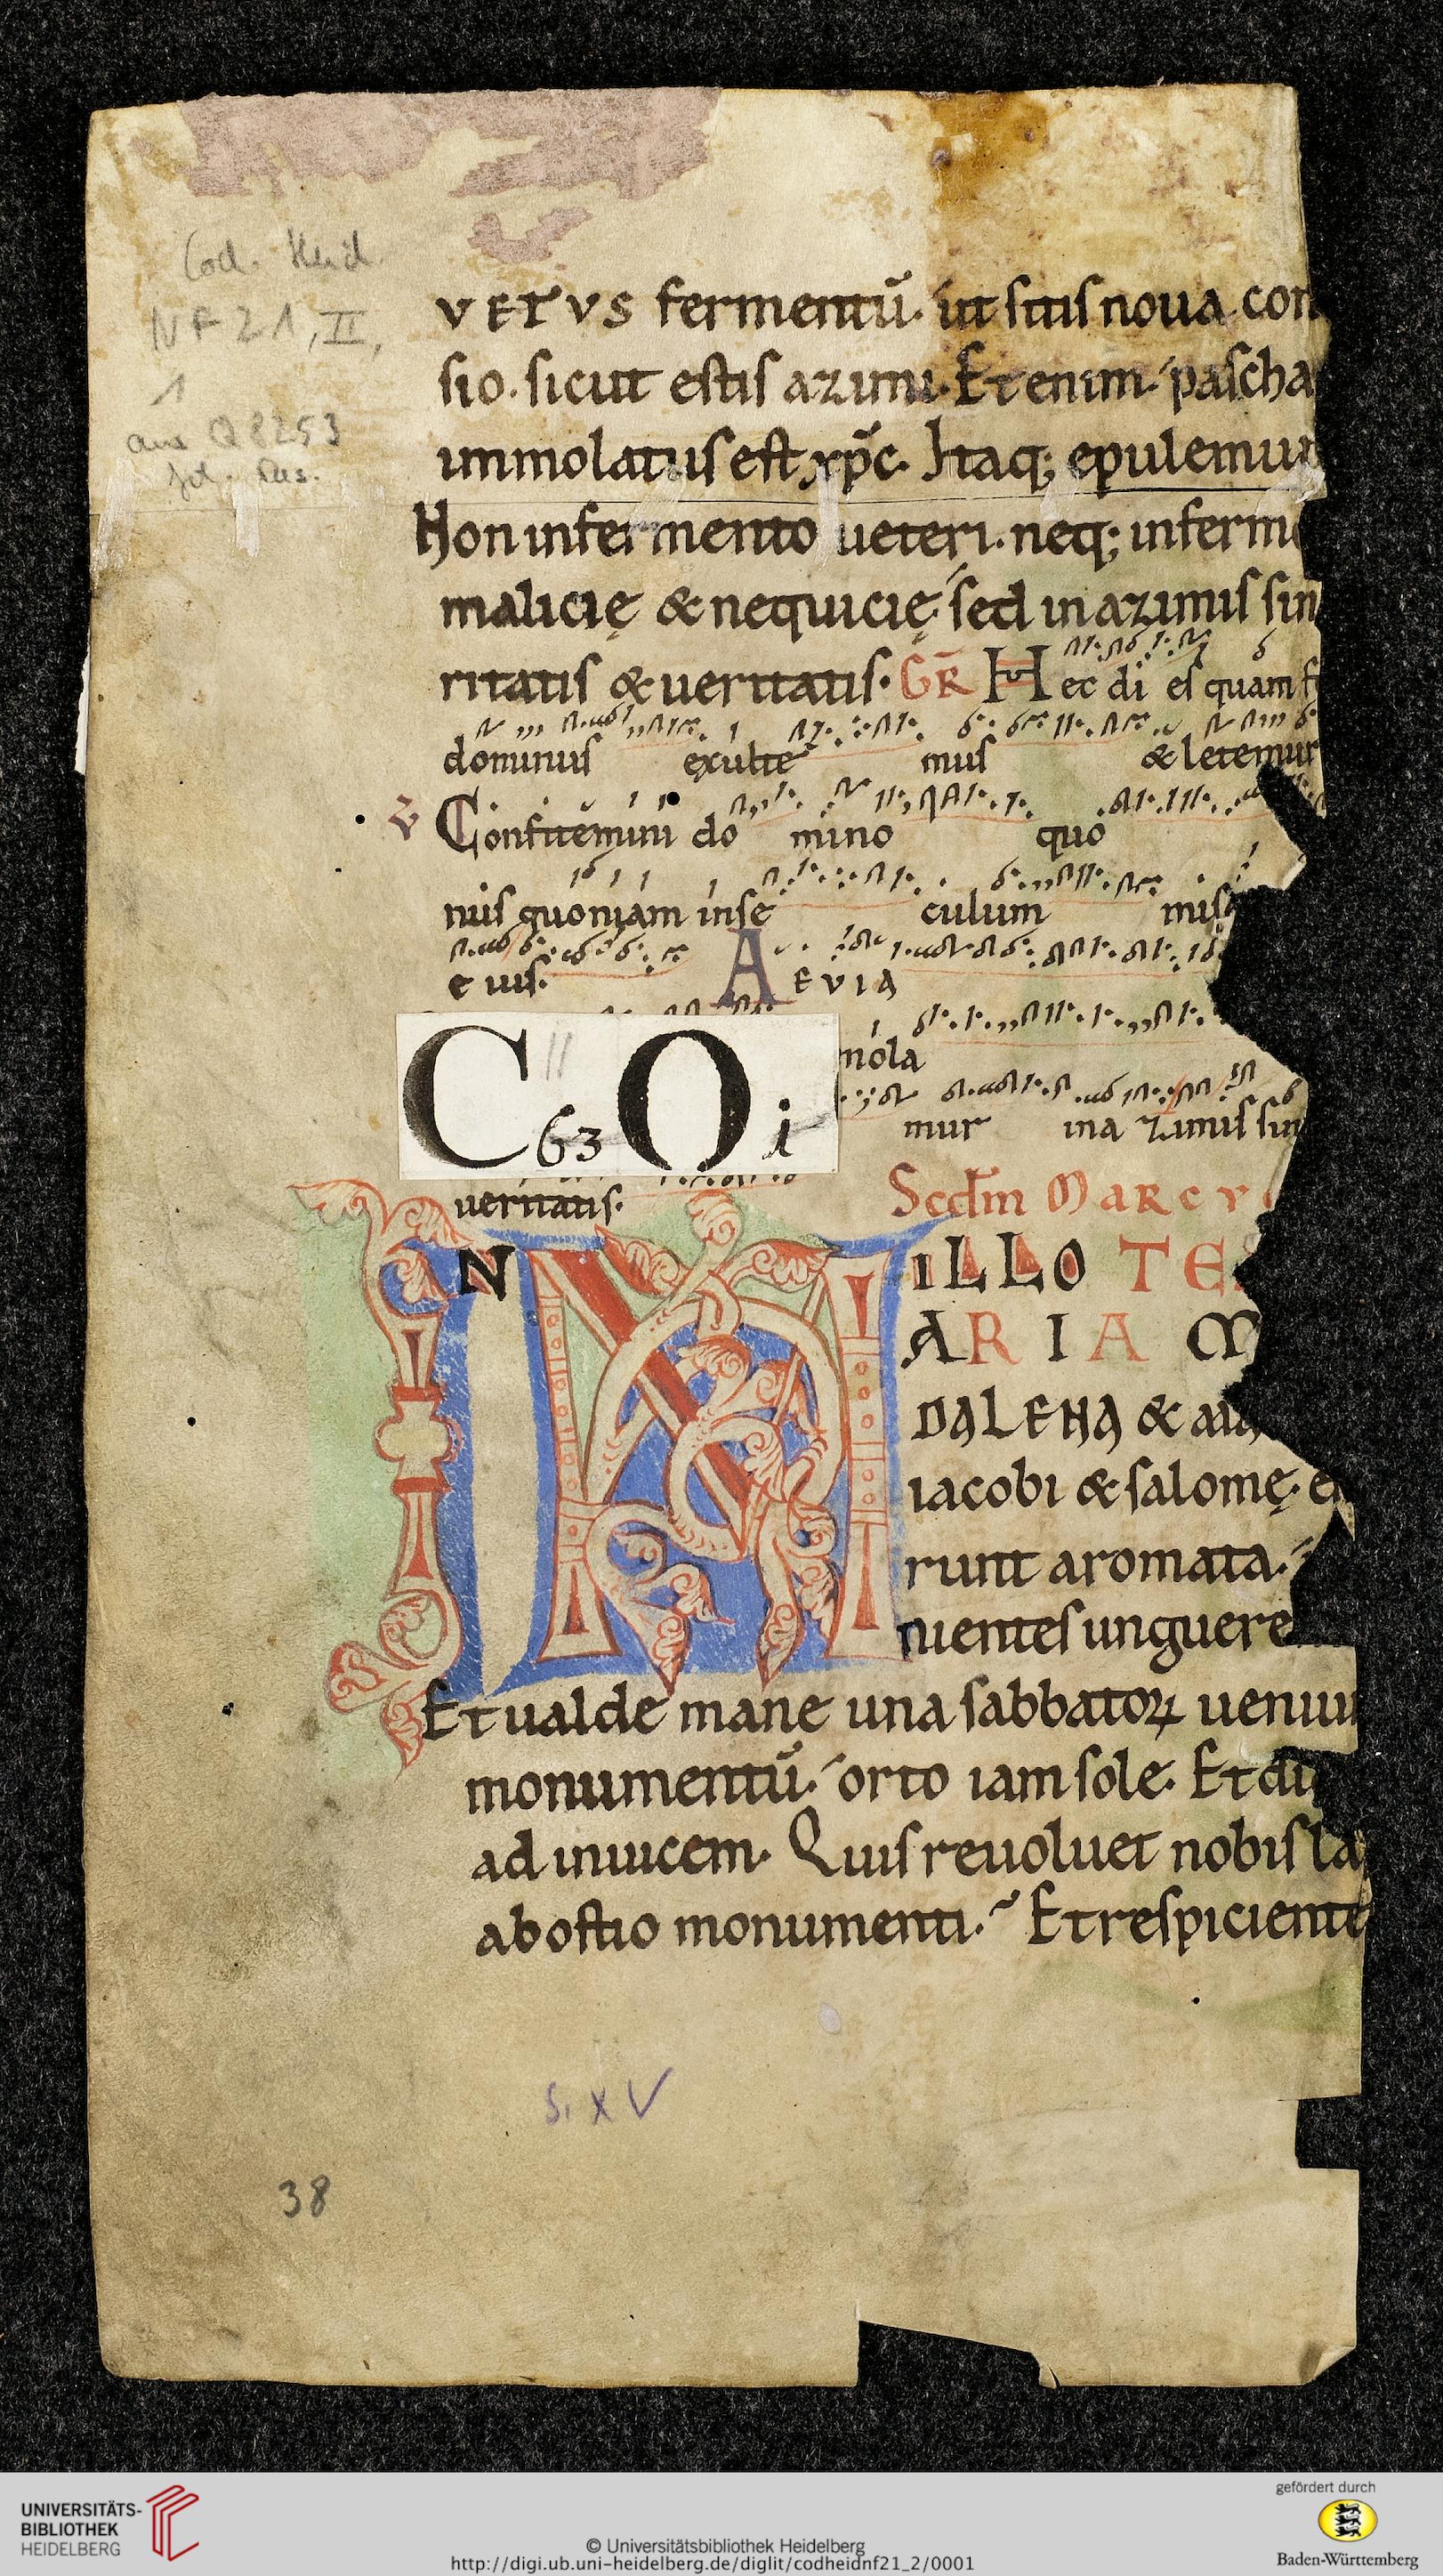 Cod. Heid.
NF 21, II,
1
aus Q 8253
VETVS fermentū. ut sitis noua con
sio. sicut estis azimi. Et enim pascha
immolatus est xp̄c. Itaq; epulemur
Non in fermento ueteri. neq; in ferm
malicię & nequicię. sed in azimis sin
ritatis & ueritatis. GR Hec di es quam f
dominus exulte mus & letemur
V Confitemini do mino quo
nus quoniam inse culum mis
e ius. AEVIA
mola
C 63 O i
mur ina zimis sin
ueritatis.
Scdm MARCV
IN ILLO TE
ARIA M
DALENA & ma
iacobi & salomę. e
runt aromata.
nientes unguere
Et ualde mane una sabbatoꝝ ueniu
monumentū. orto iam sole. Et di
ad inuicem. Quis reuoluet nobis la
ab ostio monumenti. Et respiciente
S. XV
38
UNIVERSITÄTS-
BIBLIOTHEK
HEIDELBERG
© Universitätsbibliothek Heidelberg
http://digi.ub.uni-heidelberg.de/diglit/codheidnf21_2/0001
gefördert durch
Baden-Württemberg